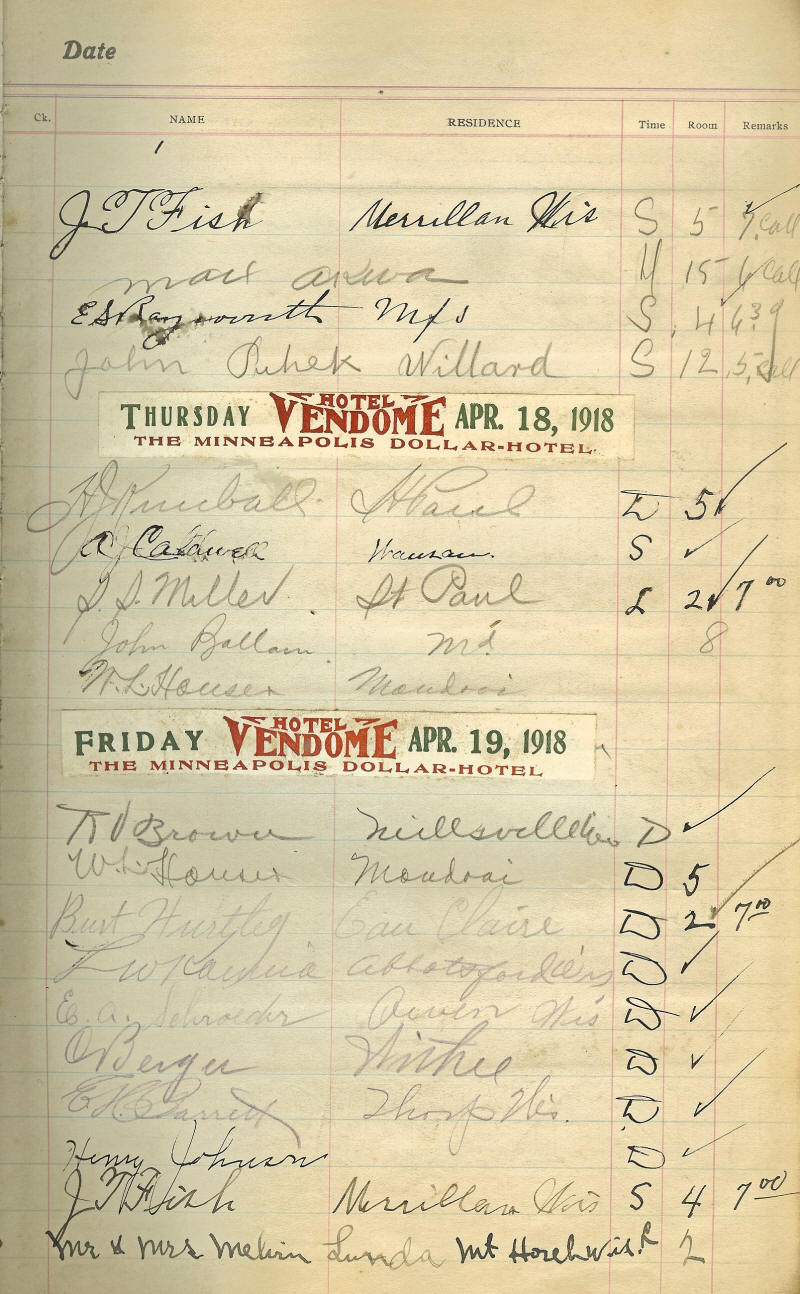 Date
Ck. NAME RESIDENCE Time Room Remarks
J T Fish Merrillan Wis S 5 7. Call
15 6 Call
E S Mfs S 4 6:30
John Willard S 12 5, Call
THURSDAY HOTEL VENDOME APR. 18, 1918
THE MINNEAPOLIS DOLLAR-HOTEL.
H J Kimball St Paul L 5
A J Caldwell Wausau. S
S. S. Miller St Paul L 2 7 00
John Ballam Md 8
W. L. Houser Mondovi
FRIDAY HOTEL VENDOME APR. 19, 1918
THE MINNEAPOLIS DOLLAR-HOTEL
Brown Neillsville Wis D
W. L. Houser Mondovi D 5
Burt Eau Claire D 2 7 00
L W Abbotsford Wis D
E. A. Schroeder Owen Wis D
O Berger Withee D
Thorp Wis. D
Henry Johnson D
J T Fish Merrillan Wis S 4 7 00
Mr & Mrs Melvin Lunda Mt Horeb Wis. 2